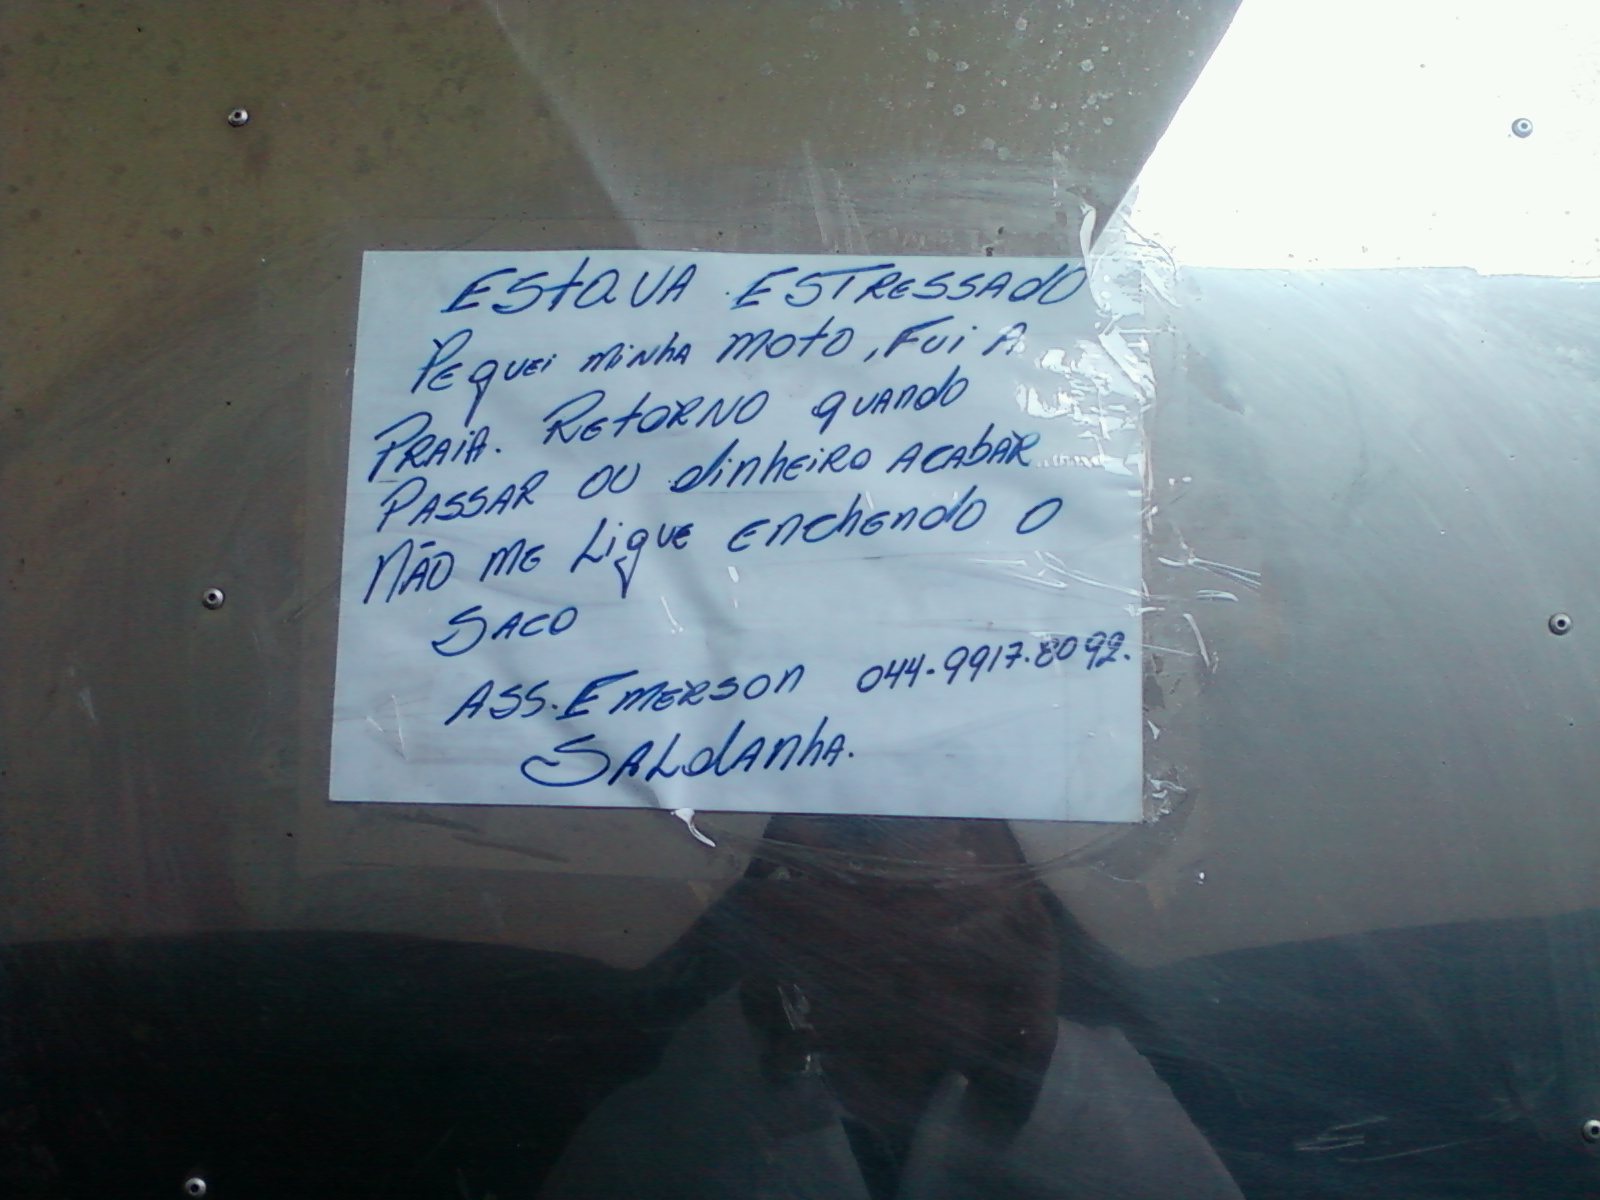 ESTAVA ESTRESSADO
PEGUEI MINHA MOTO, FUI A
PRAIA. RETORNO QUANDO
PASSAR OU DINHEIRO ACABAR
NÃO ME LIGUE ENCHENDO O
SACO
ASS. EMERSON 044-9917.8092.
SALDANHA.